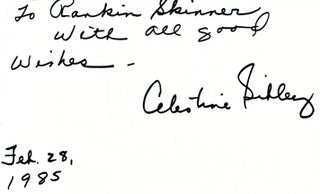 To Rankin Skinner
With all good
Wishes -
Celestine Sibley
Feb. 28,
1985